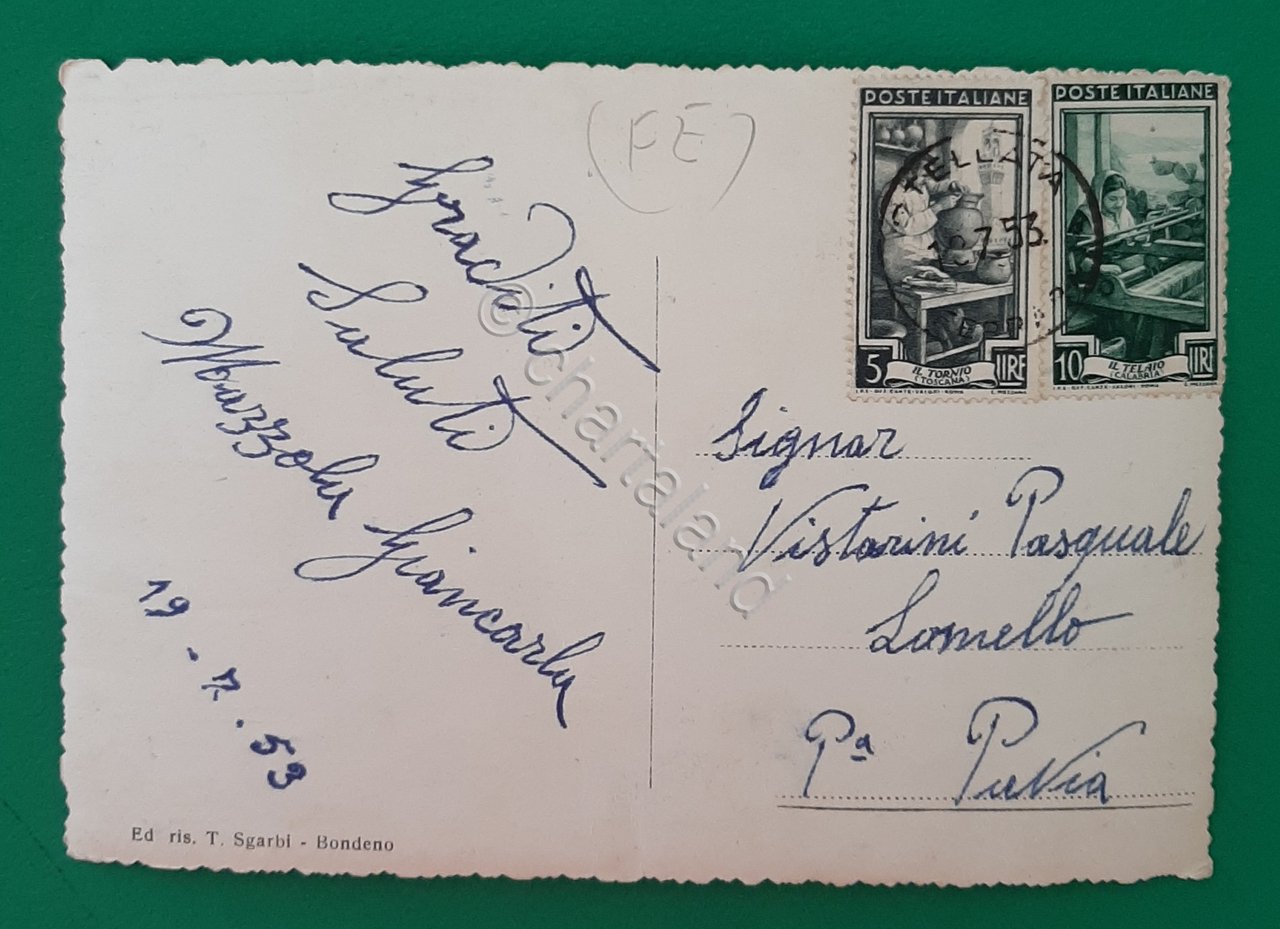 (FE)
Graditi
Saluti
Mazzola Giancarla
19-7.53
Ed ris. T. Sgarbi - Bondeno
POSTE ITALIANE
5 IL TORNIO LIRE
(TOSCANA)
POSTE ITALIANE
10 IL TELAIO LIRE
(CALABRIA)
STELLATA
7.53.
Signor
Vistarini Pasquale
Lomello
Pª Pavia
© chartaland